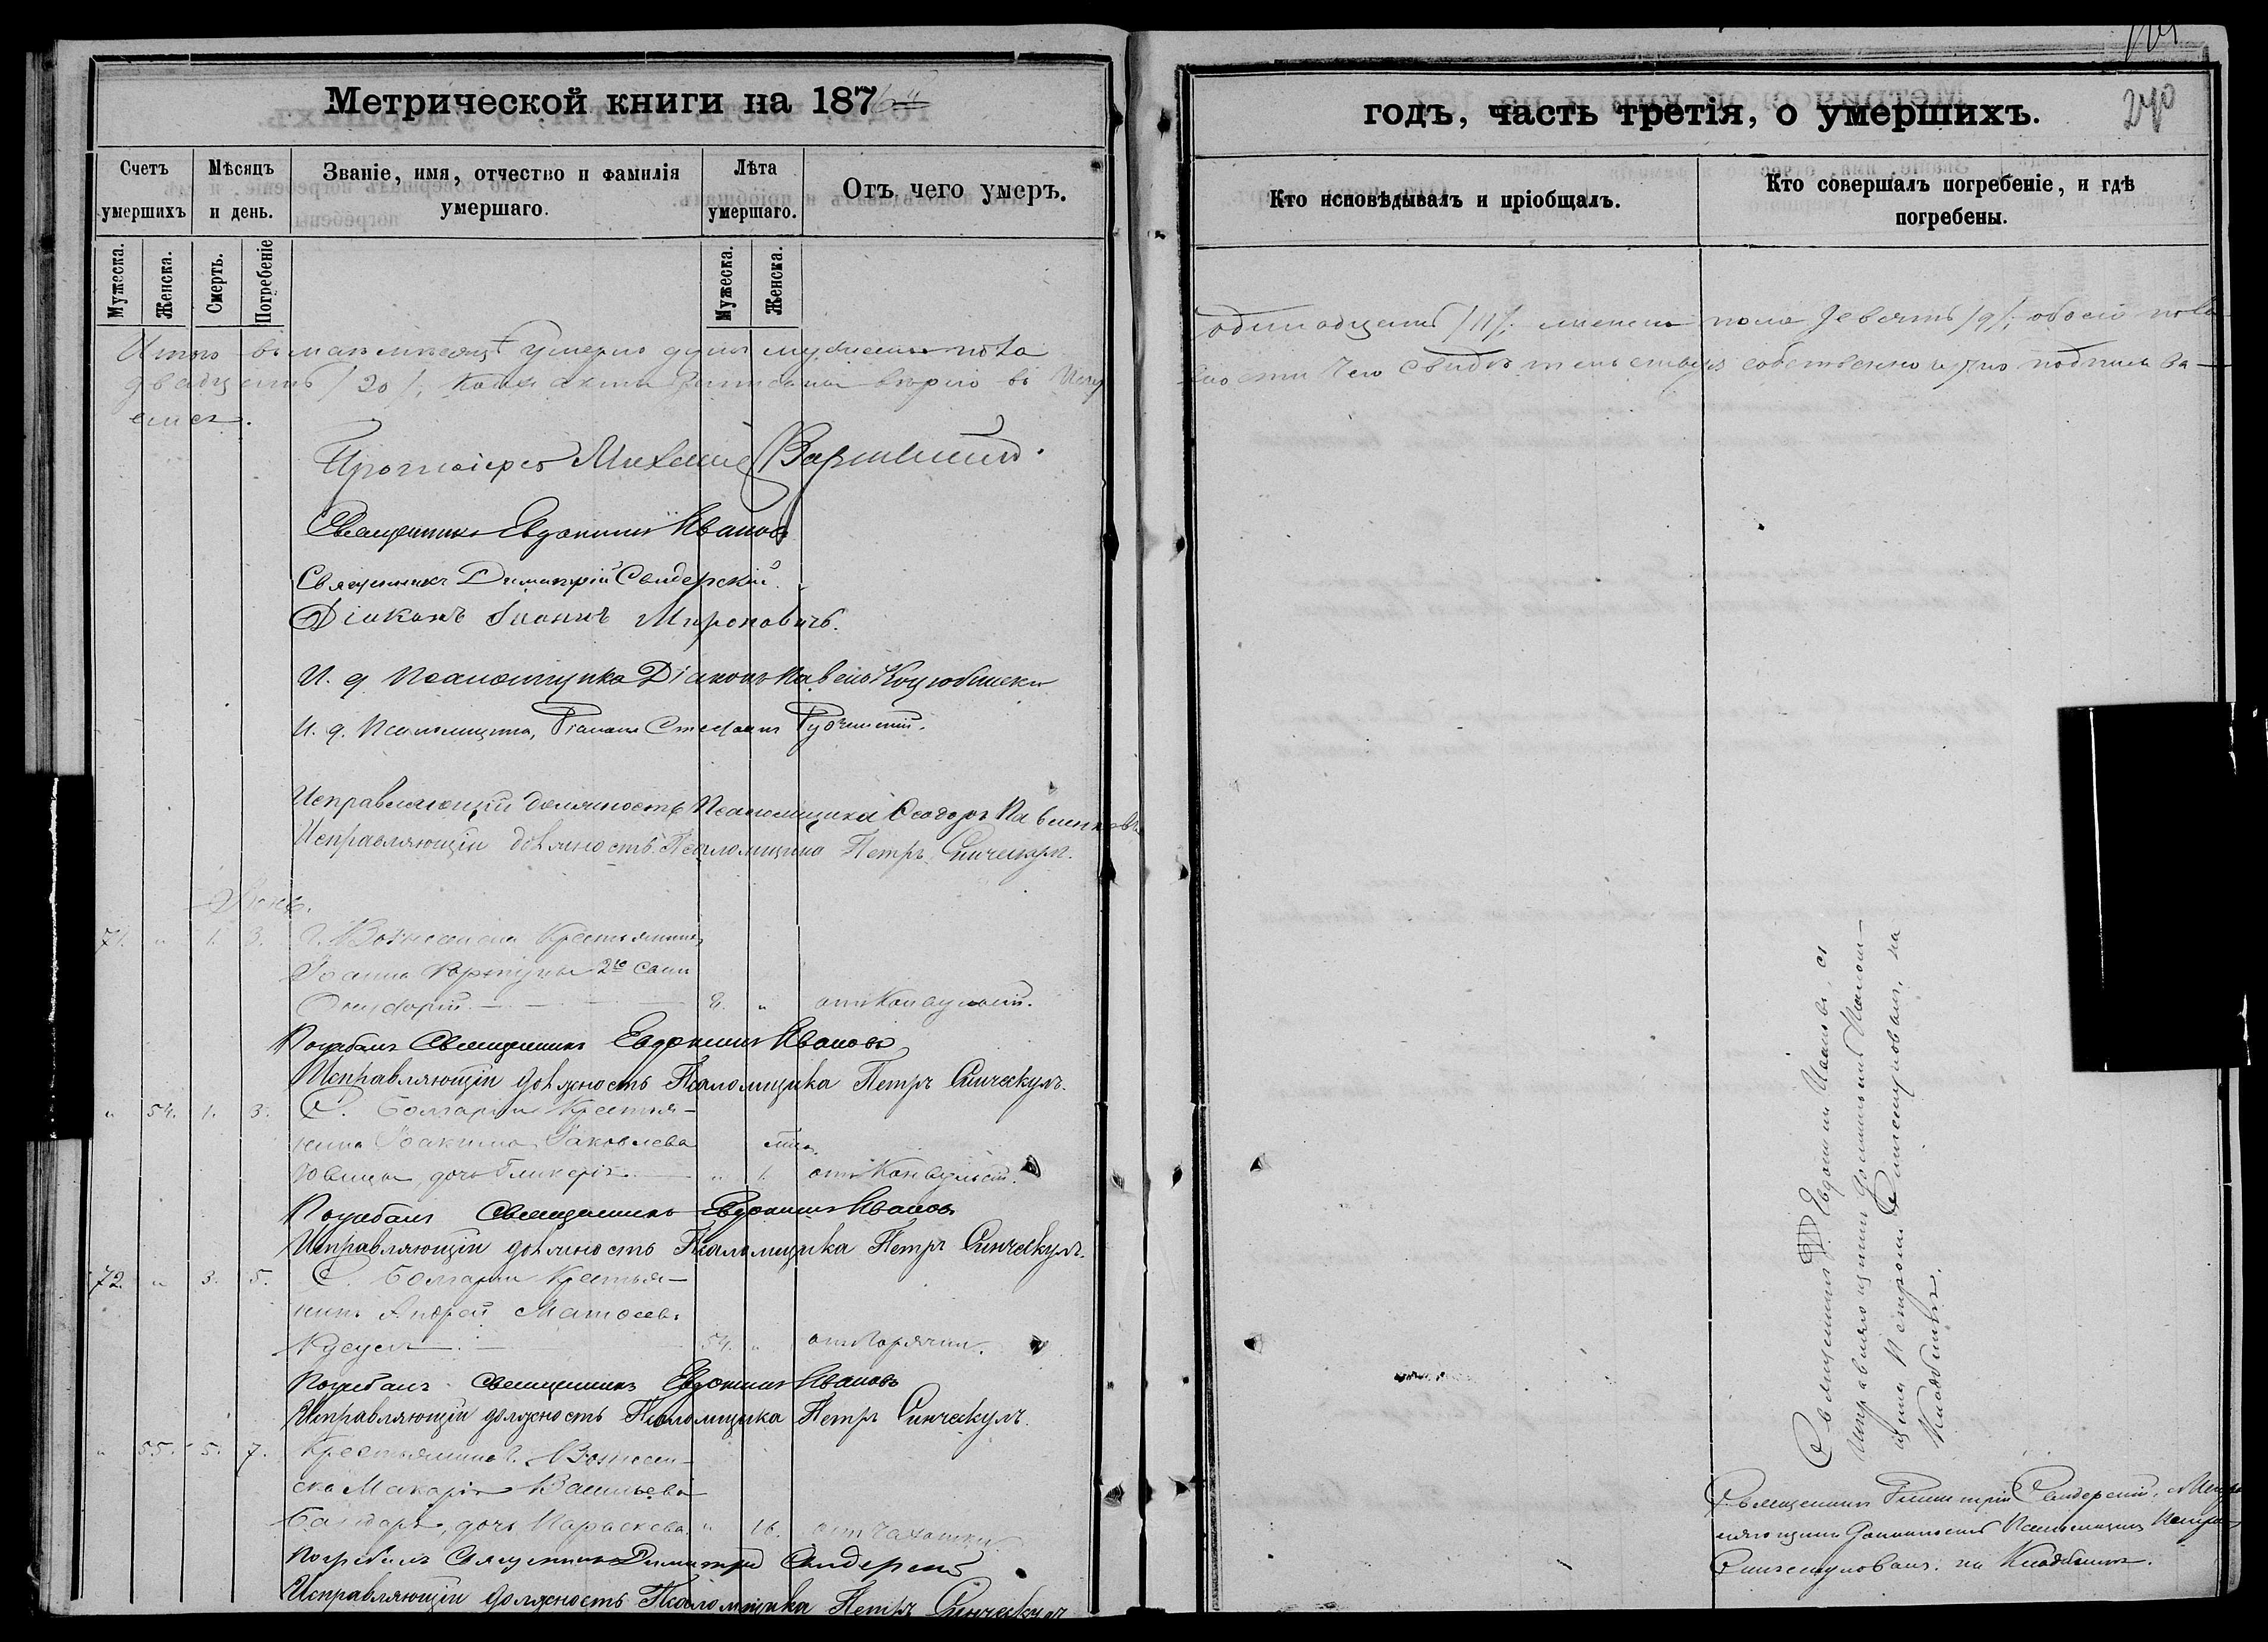 Метрической книги на 1876
годъ, часть третія, о умершихъ.
240
Счетъ умершихъ
Мѣсяцъ и день.
Званіе, имя, отчество и фамилія умершаго.
Лѣта умершаго.
Отъ чего умеръ.
Кто исповѣдывалъ и пріобщалъ.
Кто совершалъ погребеніе, и гдѣ погребены.
Мужеска.
Женска.
Смерть.
Погребеніе
Мужеска.
Женска.
Итого въ маѣ мѣсяцѣ умерло душъ мужеска пола
одинадцать /11/, женска пола девять /9/, обоего пола
двадцать /20/,
чего свидѣтельствуя собственноручно подписыва-
емся.
Протоіерей Михаилъ
Священникъ Евдокимъ Ивановъ
Священникъ Димитрій Свидерскій.
Діаконъ Іоаннъ Мироновичъ.
И. д. Псаломщика Діаконъ Павелъ Коцюбински
И. д. Псаломщика, Діаконъ Стефанъ
Исправляющій должность Псаломщика Ѳеодоръ
Исправляющій должность Псаломщика Петръ Синчекулъ.
Іюнь.
71. " 1. 3. Г. Вознесенска Крестьянина
Іоанна 2го сынъ
Онуфрій. 8. " отъ Конвульсій.
Погребалъ Священникъ Евдокимъ Ивановъ
Исправляющій должность Псаломщика Петръ Синчекулъ.
" 54. 1. 3. С. Болгарки Крестья-
нина Іоакима Яковлева
дочь Гликерія " 1. отъ Конвульсій.
Погребалъ Священникъ Евдокимъ Ивановъ
Исправляющій должность Псаломщика Петръ Синчекулъ.
72. " 3. 5. С. Болгарки Крестья-
нинъ Андрей Матѳеевъ
54. " отъ Горячки.
Погребалъ Священникъ Евдокимъ Ивановъ
Исправляющій должность Псаломщика Петръ Синчекулъ.
" 55. 5. 7. Крестьянина г. Вознесен-
ска Макарія Васильева
Бондаря, дочь Параскева. " 16. отъ Чахотки.
Погребалъ Священникъ Димитрій Свидерскій
Исправляющій должность Псаломщика Петръ Синчекулъ
Священникъ Евдокимъ Ивановъ, съ
Исправляющимъ должность Псалом-
щика Петромъ Синчекуловымъ, на
Кладбищѣ.
Священникъ Димитрій Свидерскій, съ Исправ-
ляющимъ должность Псаломщика Петромъ
Синчекуловымъ. на Кладбищѣ.